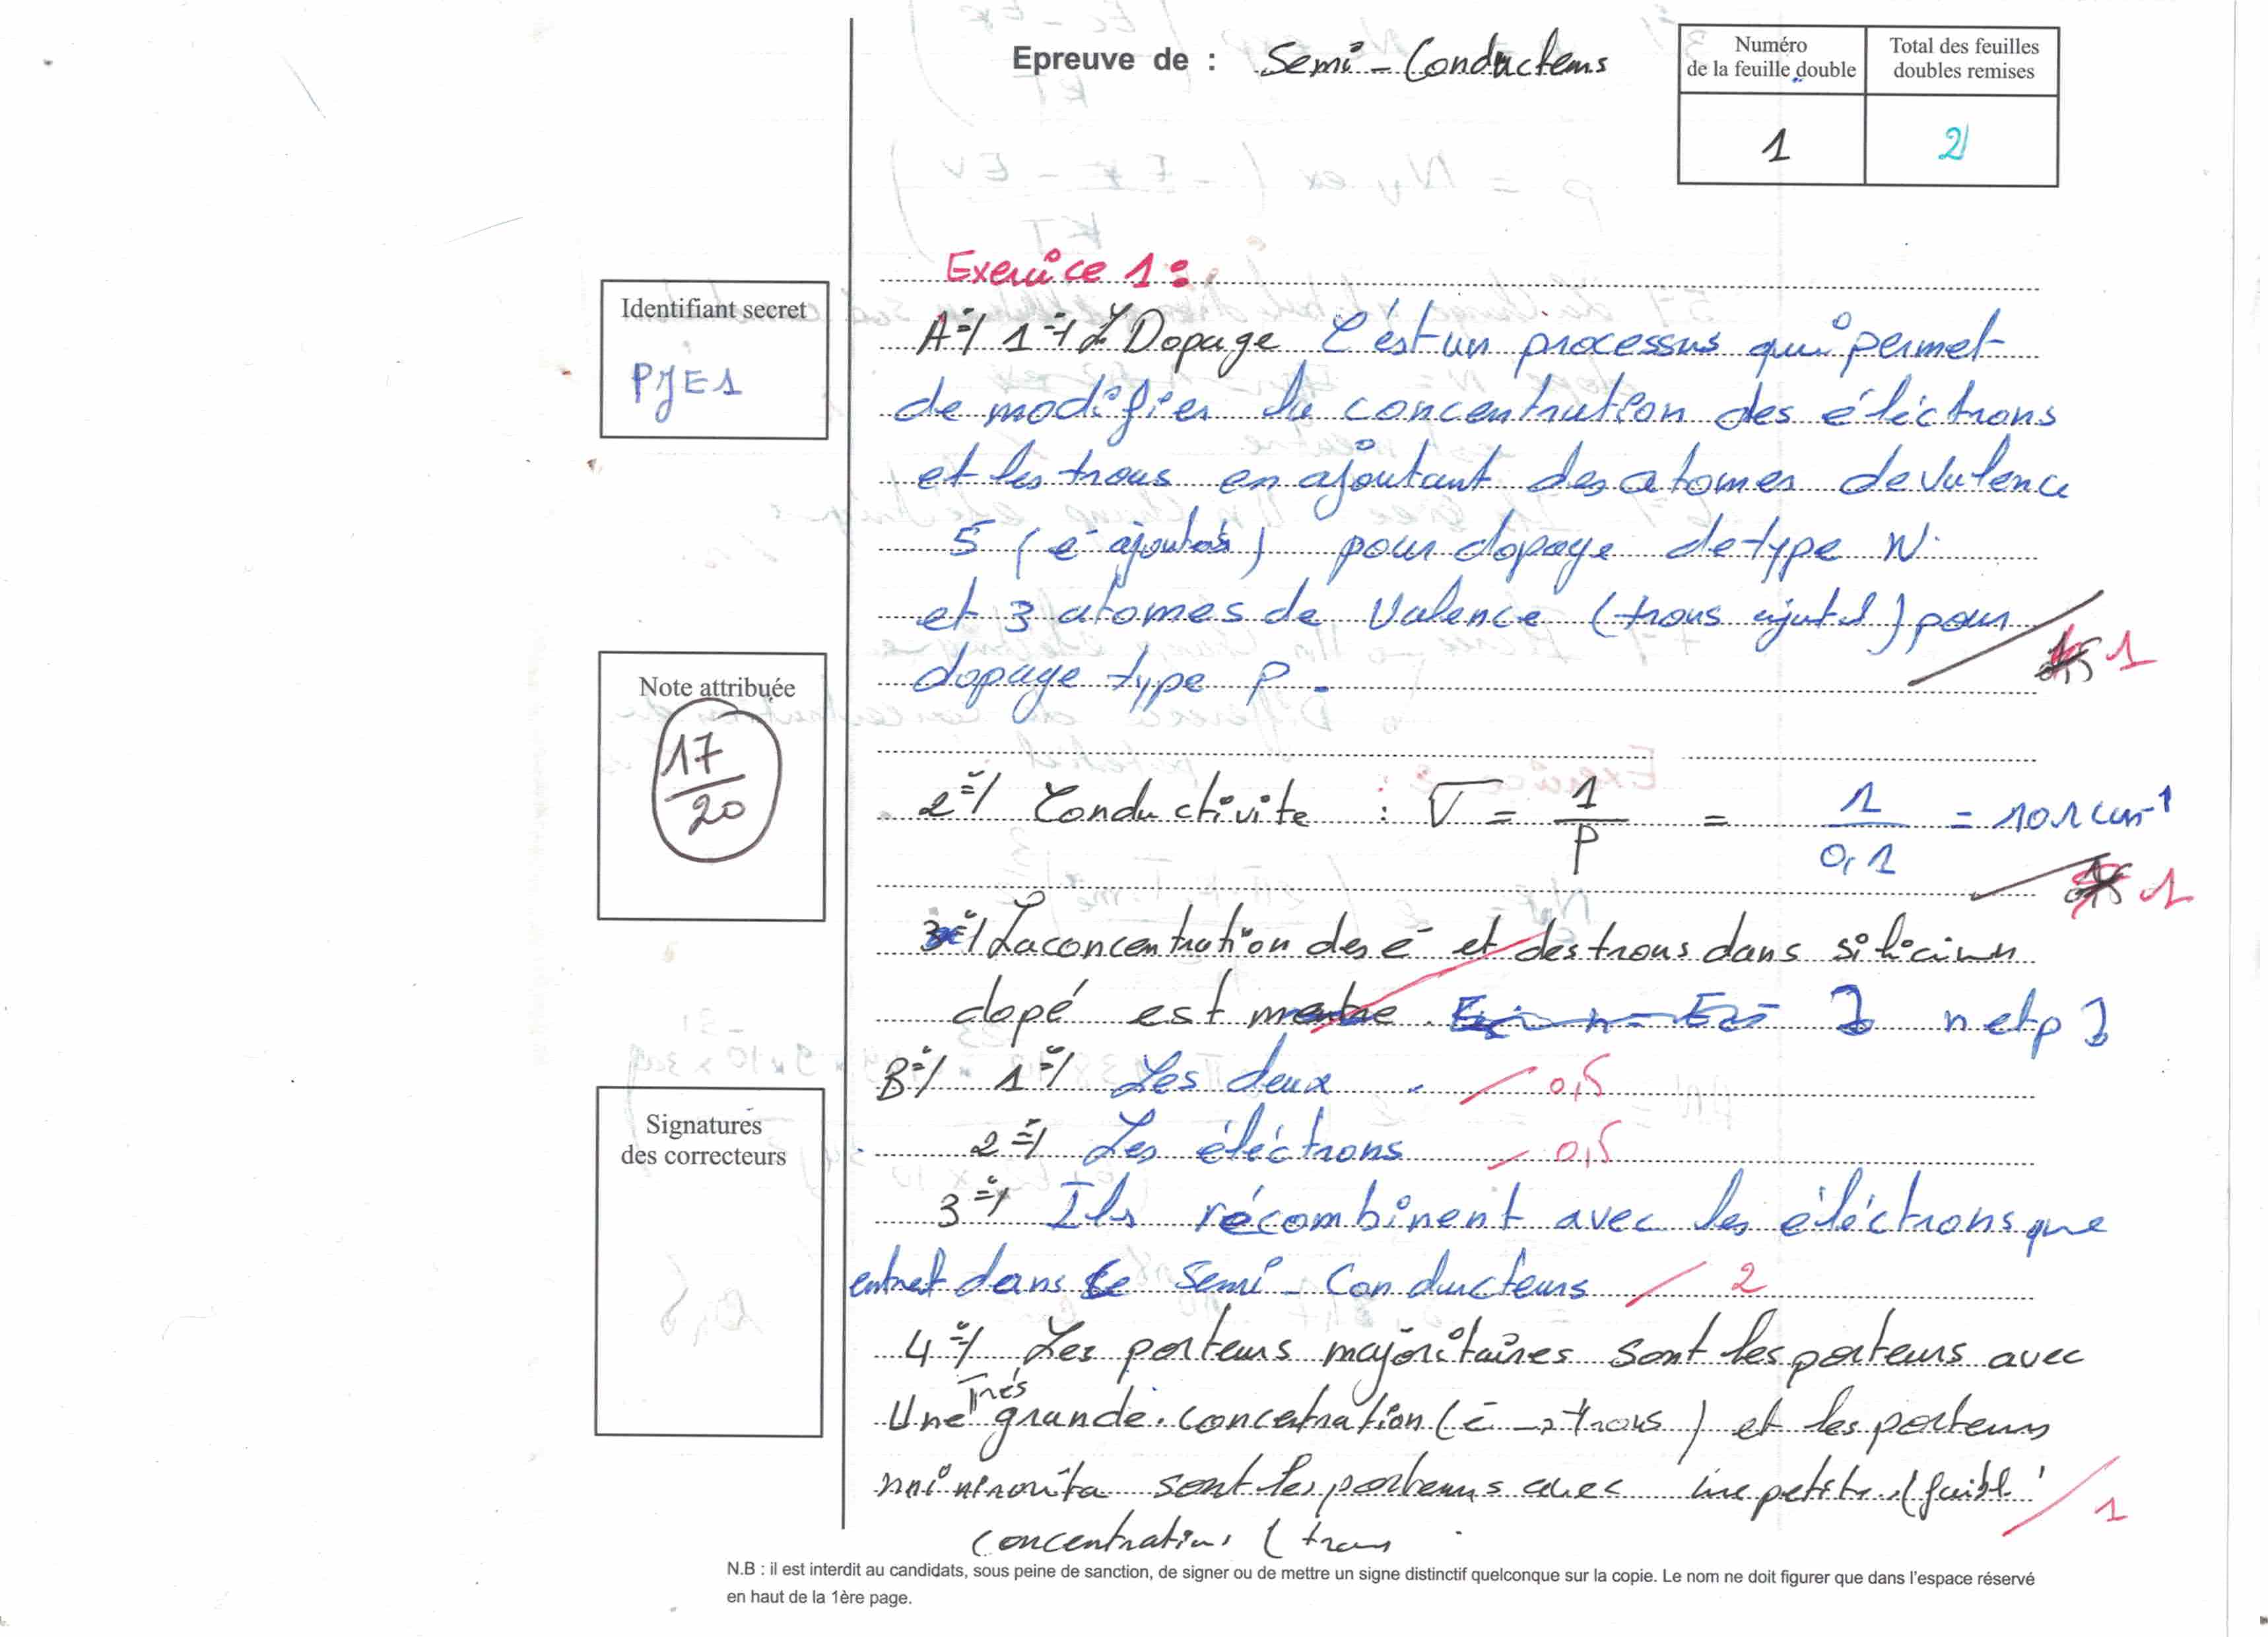 Epreuve de : Semi-Conducteurs
Numéro
de la feuille double
Total des feuilles
doubles remises
1
2
Identifiant secret
PJE1
Note attribuée
17
20
Signatures
des correcteurs
Exercice 1:
A°/ 1°/ Dopage C'ést un processus qui permet
de modifier la concentration des éléctrons
et les trous en ajoutant des atomes de valence
5 (e⁻ ajoutés) pour dopage de type N.
et 3 atomes de Valence (trous ajutés) pour
dopage type P.
1
2°/ Conductivite : σ = 1/ρ = 1/0,1 = 10 Ω cm⁻¹
1
3°/ La concentration des e⁻ et des trous dans silicium
dopé est n et p
B°/ 1°/ Les deux. 0,5
2°/ Les éléctrons 0,5
3°/ Ils récombinent avec les éléctrons que
entret dans le semi-Conducteurs 2
4°/ Les porteurs majoritaires sont les porteurs avec
Une Trés grande concentration (e⁻ → trous) et les porteurs
sont les porteurs avec une petite (faible
1
concentration (trous
N.B : il est interdit au candidats, sous peine de sanction, de signer ou de mettre un signe distinctif quelconque sur la copie. Le nom ne doit figurer que dans l'espace réservé
en haut de la 1ère page.